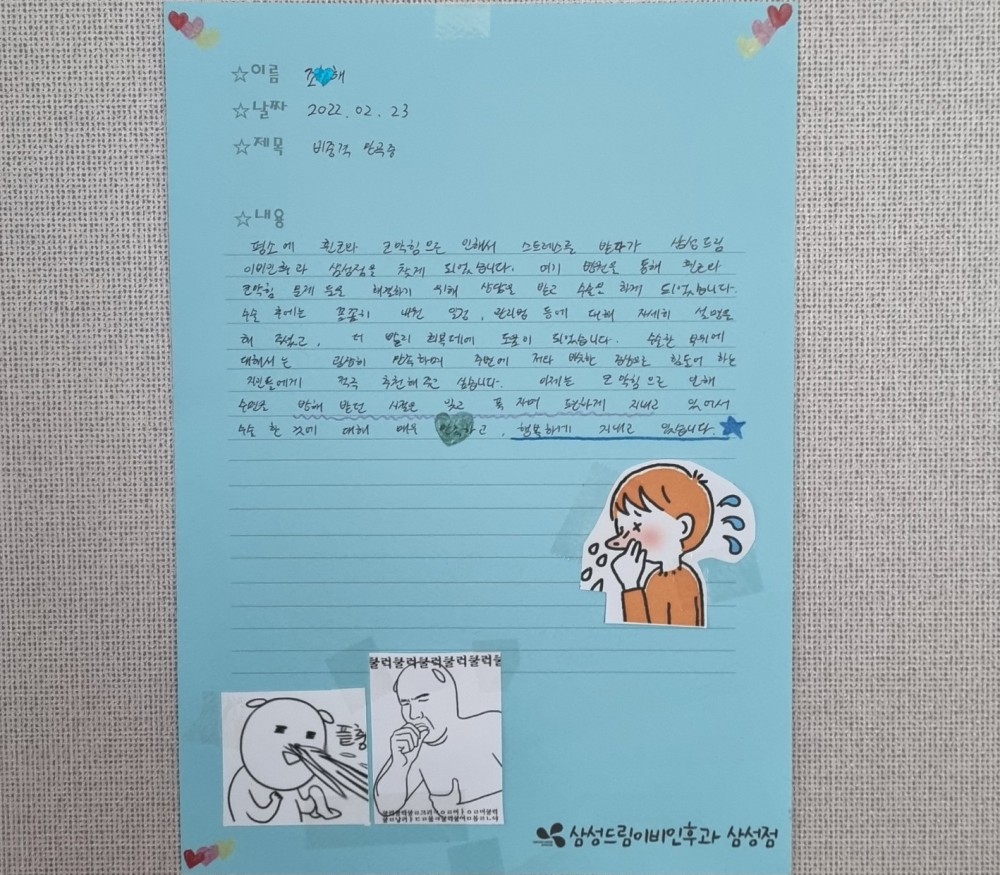 ☆이름 조 해
☆날짜 2022.02.23
☆제목 비중격 만곡증
☆내용
평소에 흰코와 코막힘으로 인해서 스트레스를 받다가 삼성드림
이비인후과 삼성점을 찾게 되었습니다. 여기 병원을 통해 흰코와
코막힘 문제 등을 해결하기 위해 상담을 받고 수술을 하게 되었습니다.
수술 후에는 꼼꼼히 내원 일정, 관리법 등에 대해 자세히 설명을
해 주셨고, 더 빨리 회복되는데에 도움이 되었습니다. 수술한 부위에
대해서는 굉장히 만족하며 주변에 저와 비슷한 증상으로 힘들어 하는
지인들에게 적극 추천해 주고 싶습니다. 이제는 코막힘으로 인해
수면을 방해 받던 시절은 잊고 푹 자며 편하게 지내고 있어서
수술 한 것에 대해 매우 만족하고, 행복하게 지내고 있습니다.
쿨럭쿨럭쿨럭쿨럭쿨럭쿨
플헝
삼성드림이비인후과 삼성점